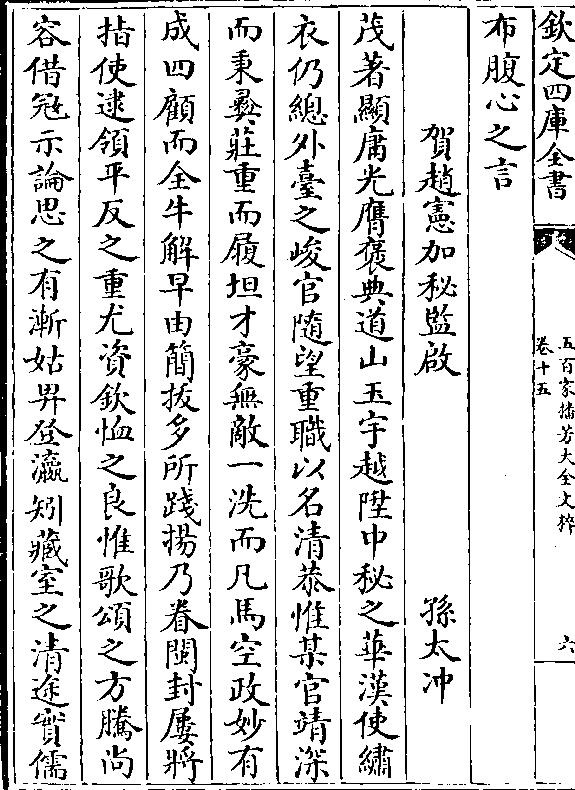 欽定四庫全書
五百家播芳大全文粹
卷十五
六
布腹心之言
賀趙憲加秘監啟
孫太冲
茂著顯庸光膺褒典道山玉宇越陞中秘之華漢使繡
衣仍總外臺之峻官隨望重職以名清恭惟某官靖深
而秉彛莊重而履坦才豪無敵一洗而凡馬空政妙有
成四顧而全牛解早由簡拔多所踐揚乃眷閩封屢將
指使逮領平反之重尤資欽恤之良惟歌頌之方騰尚
容借冦示論思之有漸姑畀登瀛矧藏室之清途實儒